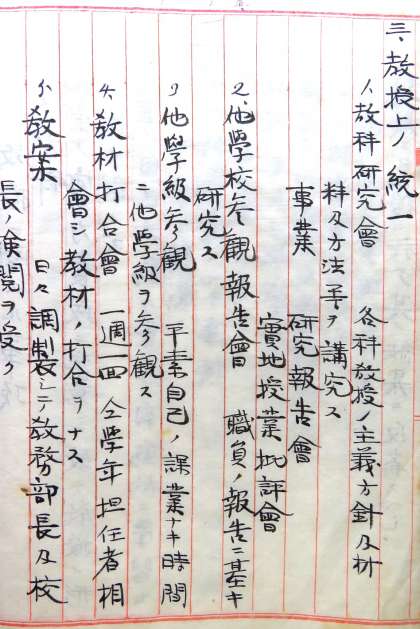 三、教授上ノ統一
1、教科研究會　各科教授ノ主義方針及材
料及方法等ヲ講究ス
事業　研究報告會
實地授業批評會
2、他學校参観報告會　職員ノ報告ニ基キ
研究ス
3、他學級参観　平素自己ノ課業ナキ時間
ニ他學級ヲ参観ス
4、教材打合會　一週一回全學年担任者相
會シ教材ノ打合ヲナス
5、教案　日々調製シテ教務部長及校
長ノ検閲ヲ受ク